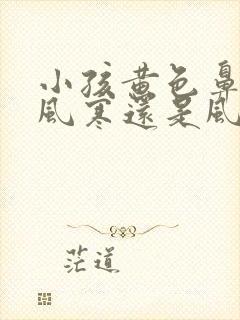 小孩黄色鼻
風寒還是風
茫道